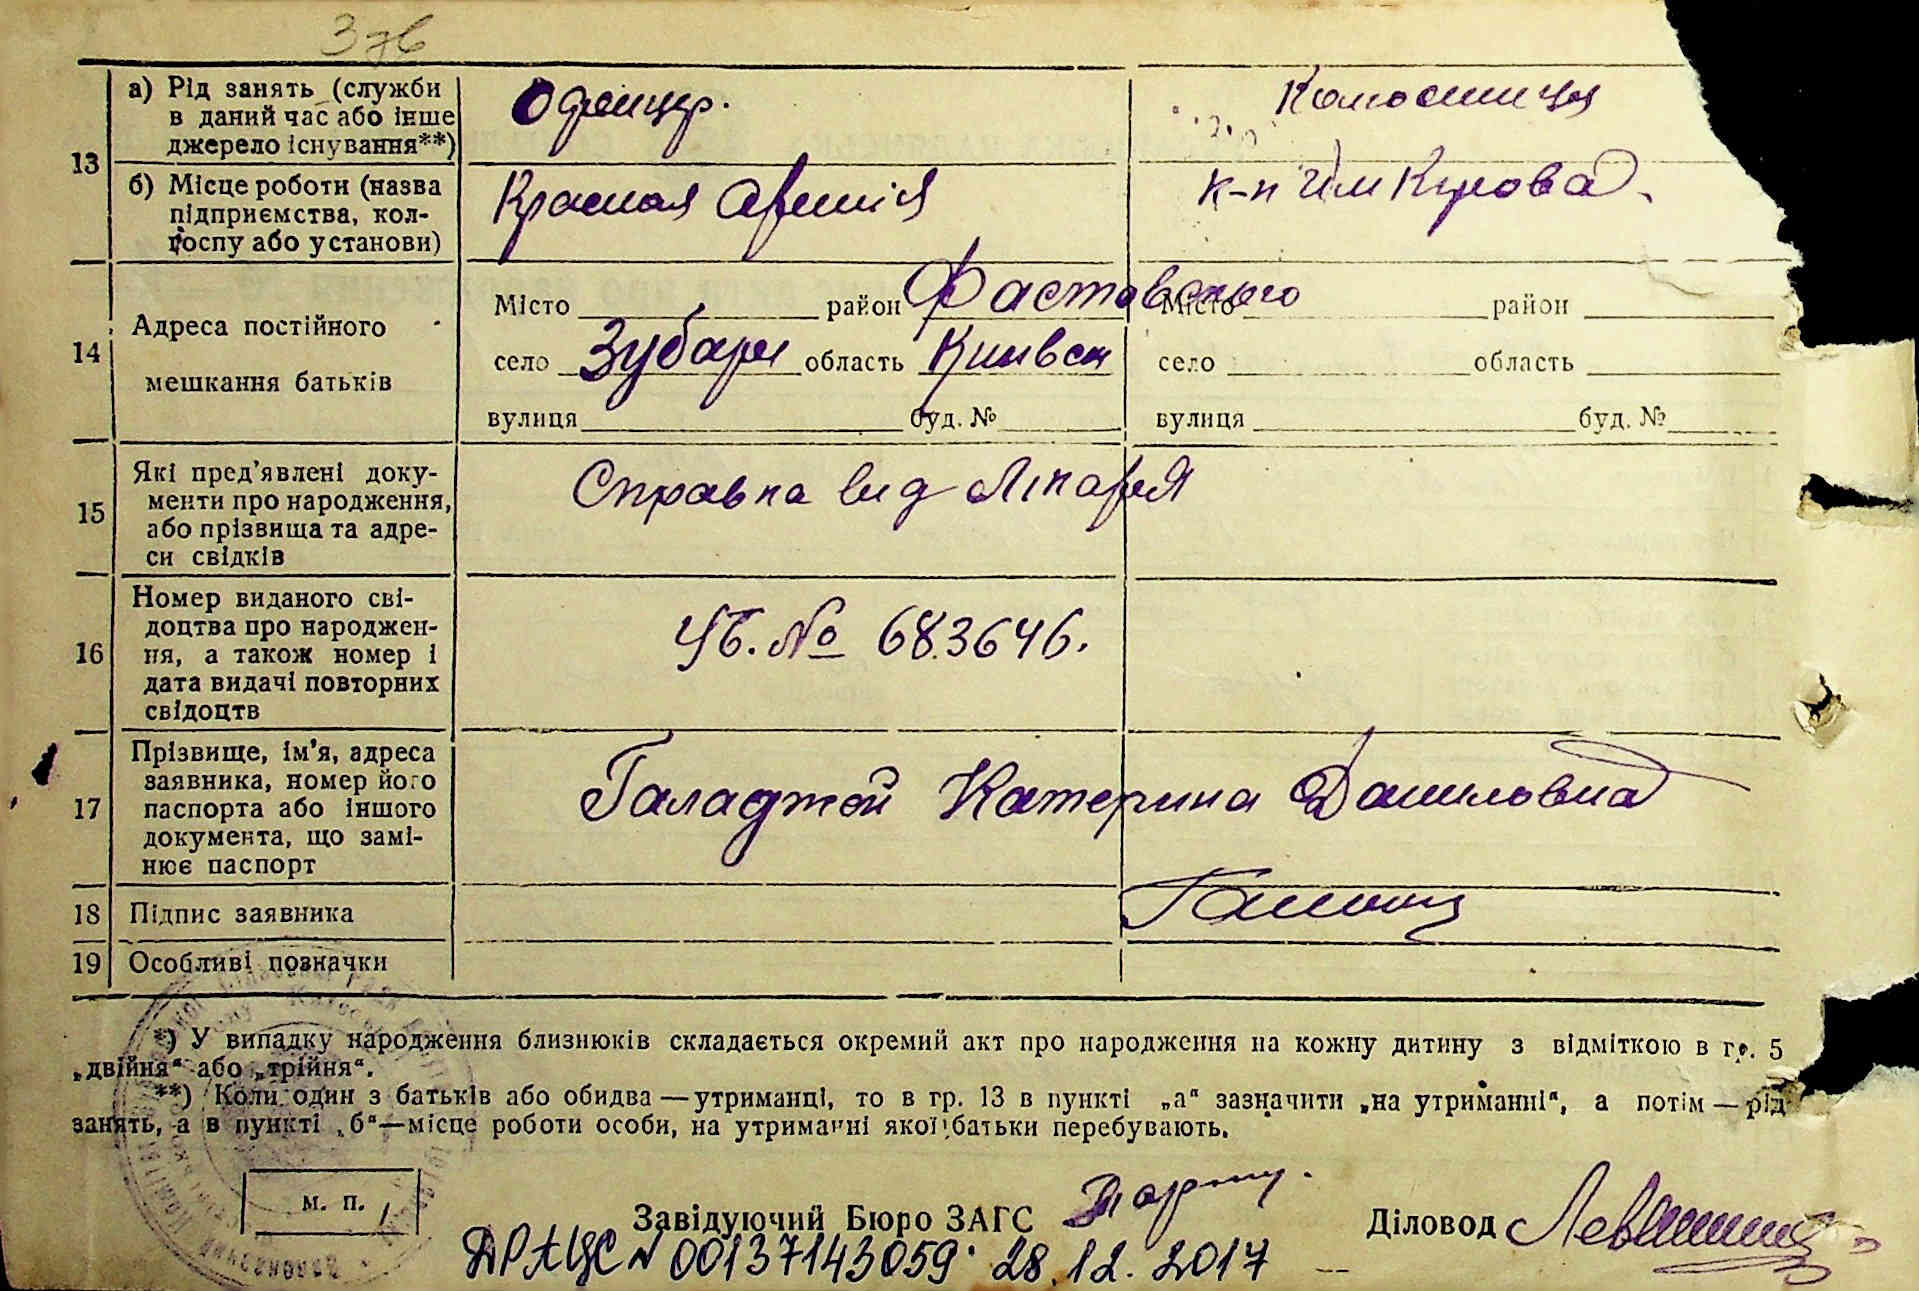 13
а) Рід занять (служби
в даний час або інше
джерело існування**)
Офицер.
б) Місце роботи (назва
підприємства, кол-
госпу або установи)
Красная Армія
к-п Им Кирова
14
Адреса постійного
мешкання батьків
Місто район Фастовського
село Зубари область Київск
вулиця буд. №
Місто район
село область
вулиця буд. №
15
Які пред'явлені доку-
менти про народження,
або прізвища та адре-
си свідків
Справка вид Лікарея
16
Номер виданого сві-
доцтва про народжен-
ня, а також номер і
дата видачі повторних
свідоцтв
УБ. № 683646.
17
Прізвище, ім'я, адреса
заявника, номер його
паспорта або іншого
документа, що замі-
нює паспорт
Галаджой Катерина Даниловна
18 Підпис заявника
19 Особливі позначки
*) У випадку народження близнюків складається окремий акт про народження на кожну дитину з відміткою в гр. 5
„двійня“ або „трійня“.
**) Коли один з батьків або обидва — утриманці, то в гр. 13 в пункті „а“ зазначити „на утриманні“, а потім — рід
занять, а в пункті „б“—місце роботи особи, на утриманні якої батьки перебувають.
м. п.
Завідуючий Бюро ЗАГС
Діловод
ДРАЦС N 00137143059 28.12.2017